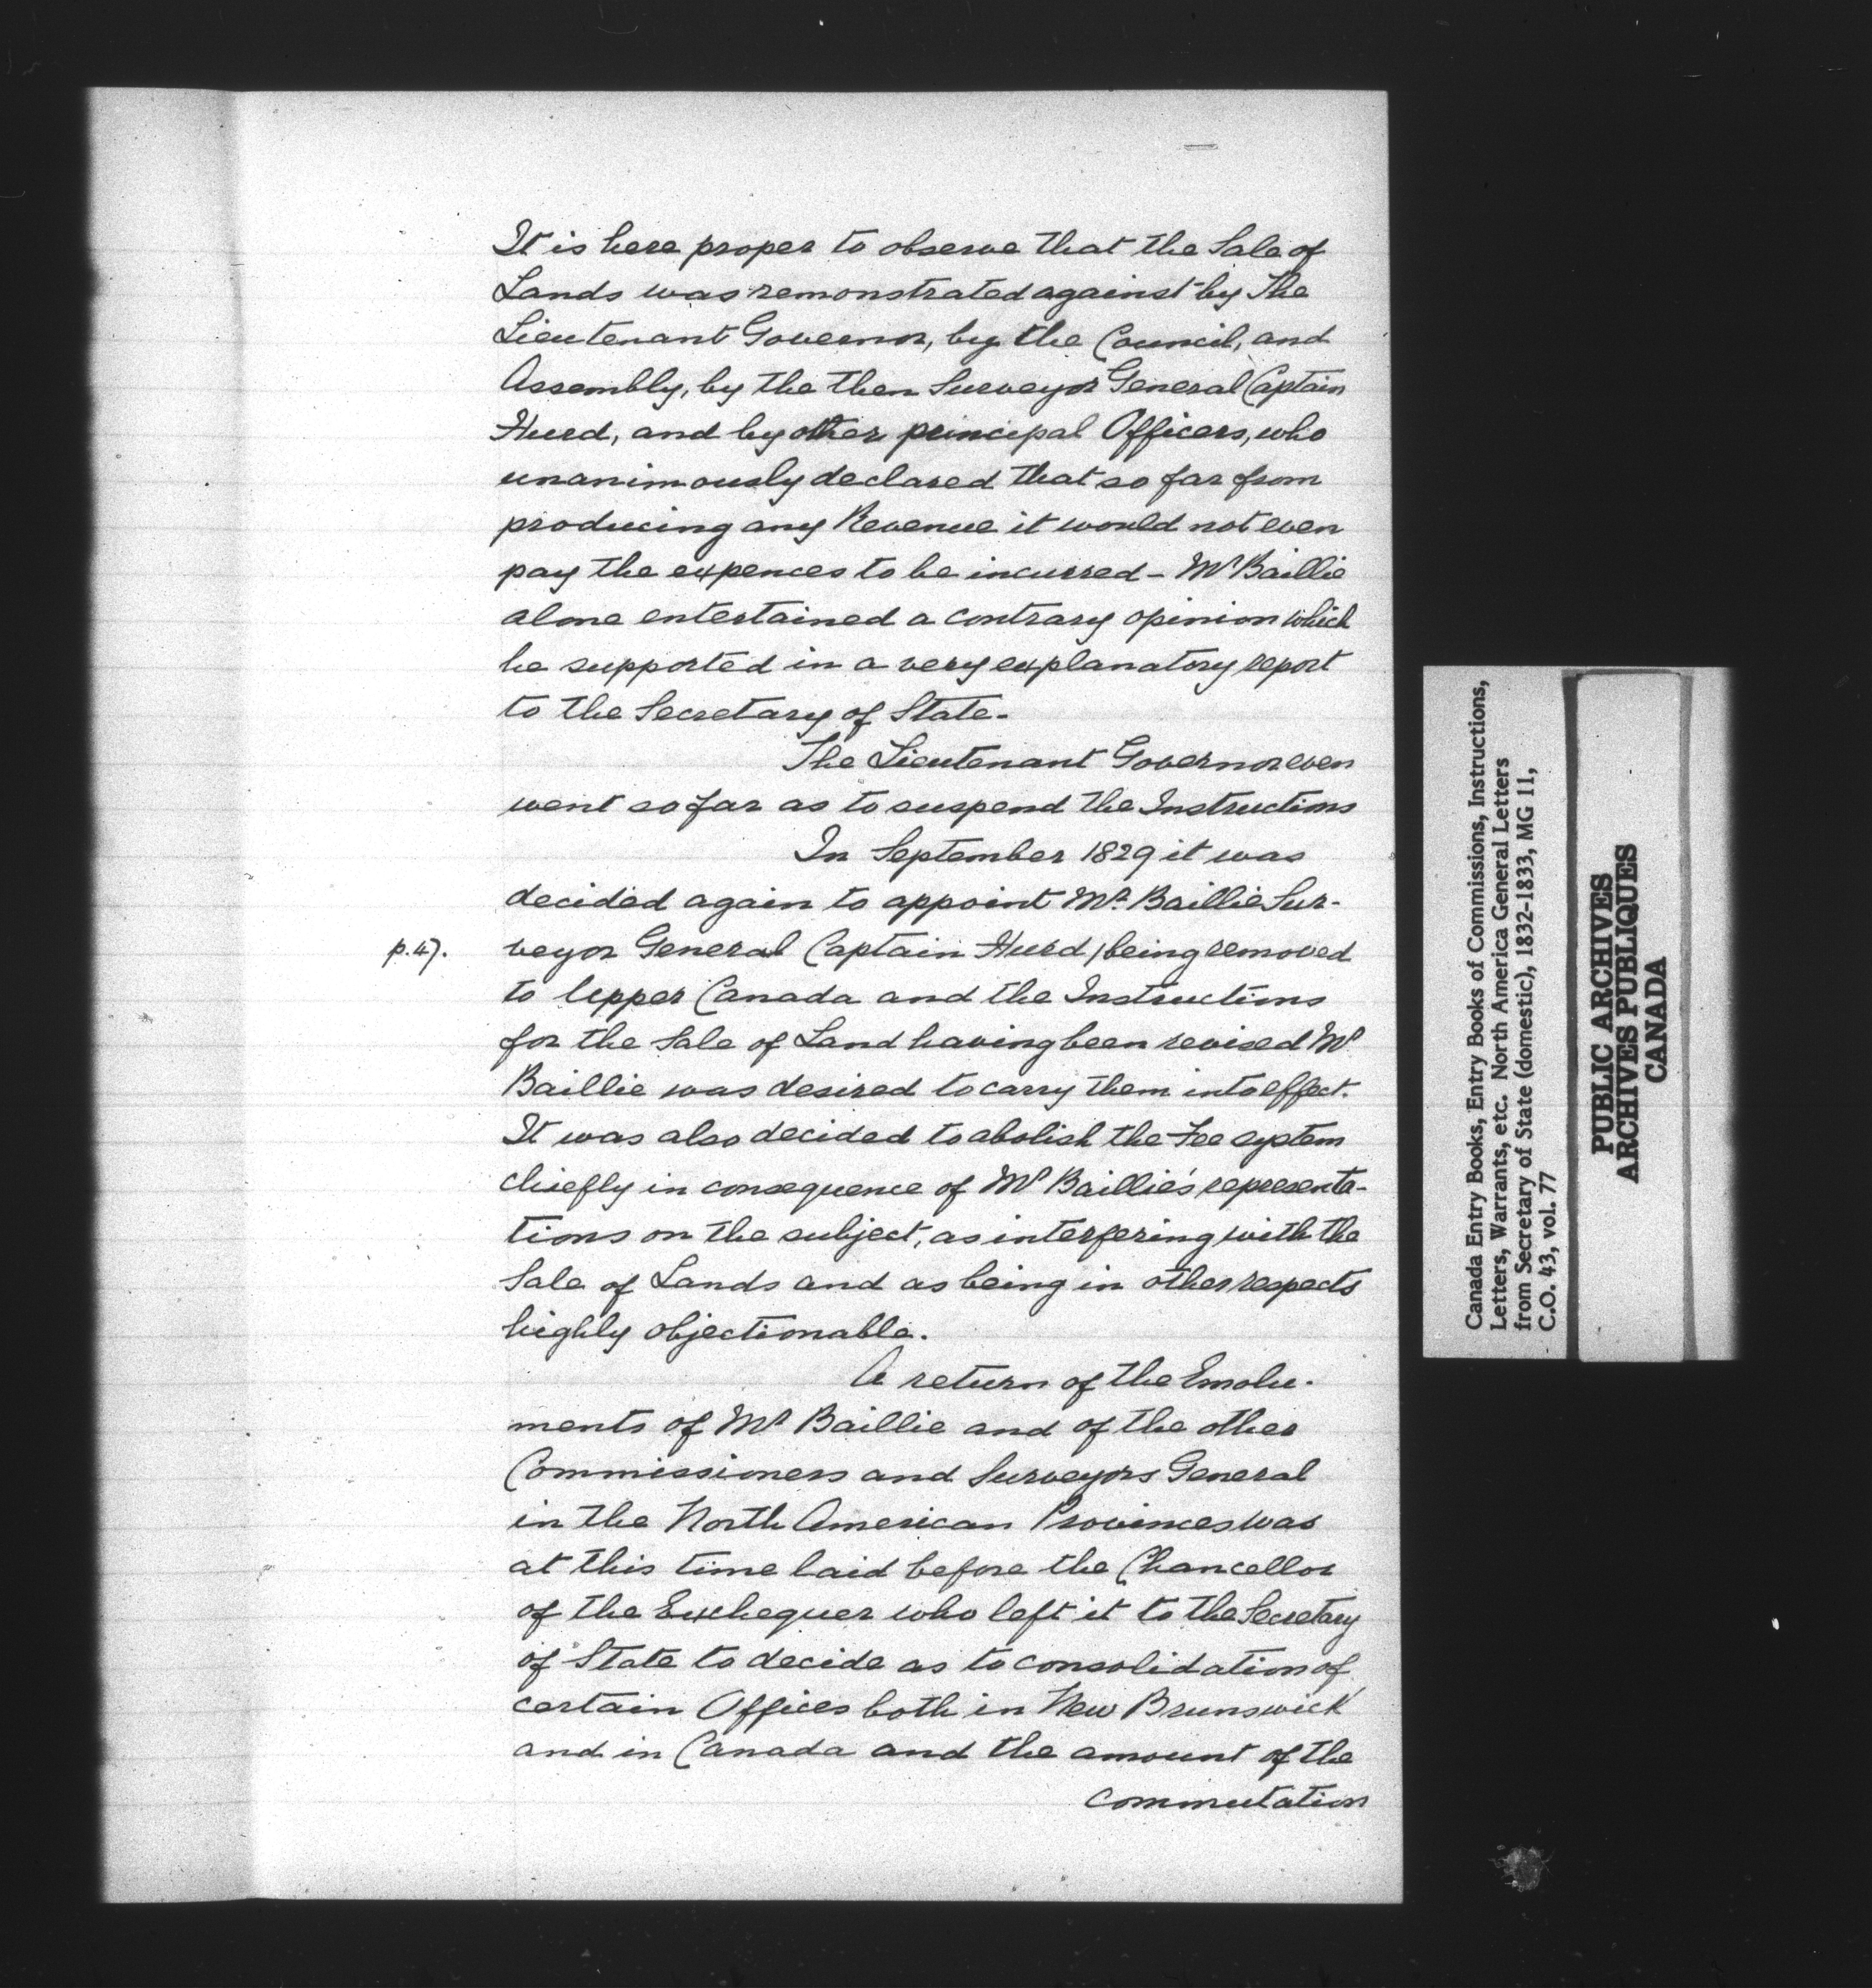 It is here proper to observe that the Sale of
Lands was remonstrated against by The
Lieutenant Governor, by the Council, and
Assembly, by the then Surveyor General Captain
Hurd, and by other principal Officers, who
unanimously declared that so far from
producing any Revenue it would not even
pay the expences to be incurred - Mr Baillie
alone entertained a contrary opinion which
he supported in a very explanatory report
to the Secretary of State.
The Lieutenant Governor even
went so far as to suspend the Instructions
In September 1829 it was
decided again to appoint Mr. Baillie Sur-
p.47. veyor General Captain Hurd, being removed
to Upper Canada and the Instructions
for the Sale of Land having been revised Mr
Baillie was desired to carry them into effect.
It was also decided to abolish the Fee system
chiefly in consequence of Mr Baillie's representa-
tions on the subject, as interfering with the
Sale of Lands and as being in other respects
highly objectionable.
A return of the Emolu-
ments of Mr Baillie and of the other
Commissioners and Surveyors General
in the North American Provinces was
at this time laid before the Chancellor
of the Exchequer who left it to the Secretary
of State to decide as to consolidation of
certain Offices both in New Brunswick
and in Canada and the amount of the
commutation
Canada Entry Books, Entry Books of Commissions, Instructions,
Letters, Warrants, etc. North America General Letters
from Secretary of State (domestic), 1832-1833, MG 11,
C.O. 43, vol. 77
PUBLIC ARCHIVES
ARCHIVES PUBLIQUES
CANADA